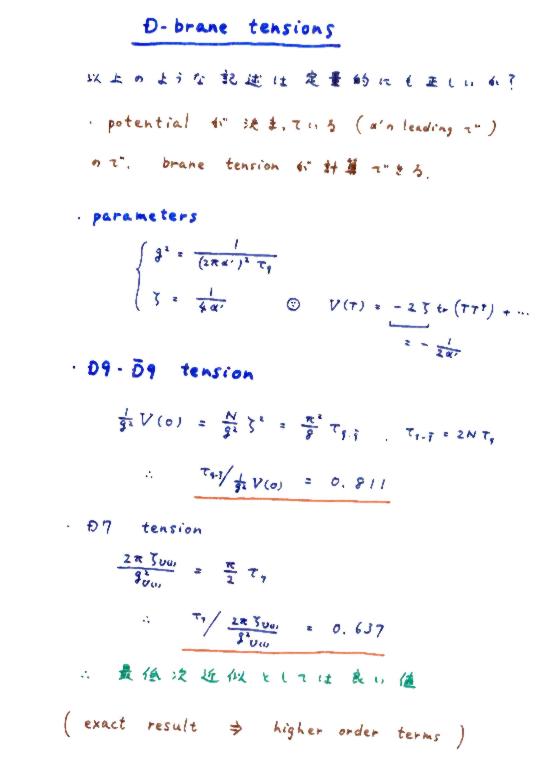 D-brane tensions
以上のような記述は定量的にも正しいか?
・ potential が 決まっている (α'の leading で)
ので、 brane tension が 計算できる.
・ parameters
{ g² = 1/((2πα')² τ₉)
ζ = 1/4α' ☺ V(T) = -2ζ tr(TT†) + ...
= -1/2α'
・ D9-D̄9 tension
1/g² V(0) = N/g² ζ² = π²/8 τ_{9-9̄} , τ_{9-9̄} = 2Nτ₉
∴ τ_{9-9̄} / 1/g² V(0) = 0.811
・ D7 tension
2πζ_{U(1)}/g²_{U(1)} = π/2 τ₇
∴ τ₇ / 2πζ_{U(1)}/g²_{U(1)} = 0.637
∴ 最低次近似としては良い値
( exact result ⇒ higher order terms )